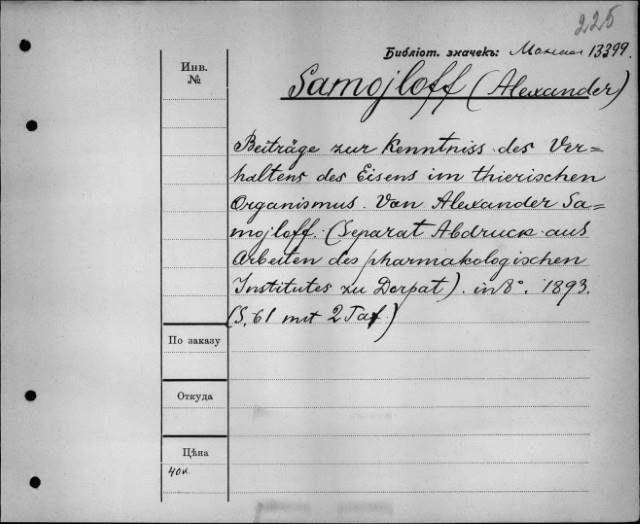 225
Библіот. значекъ: 13399.
Инв.
№
Samojloff (Alexander)
Beiträge zur Kenntniss des Ver=
haltens des Eisens im thierischen
Organismus. Von Alexander Sa=
mojloff. (Separat Abdruck aus
Arbeiten des pharmakologischen
Institutes zu Dorpat). in 8°. 1893.
(S. 61 mit 2 Taf.)
По заказу
Откуда
Цѣна
40к.